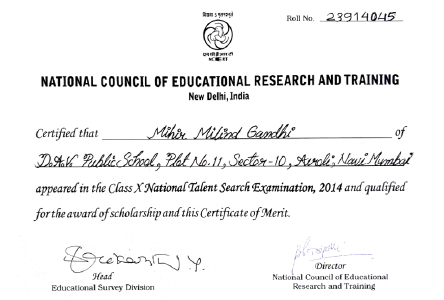 Roll No. 23914045
NCERT
NATIONAL COUNCIL OF EDUCATIONAL RESEARCH AND TRAINING
New Delhi, India
Certified that Mihir Milind Gandhi of
D.A.V. Public School, Plot No. 11, Sector-10, Airoli, Navi Mumbai
appeared in the Class X National Talent Search Examination, 2014 and qualified
for the award of scholarship and this Certificate of Merit.
Head
Educational Survey Division
Director
National Council of Educational
Research and Training